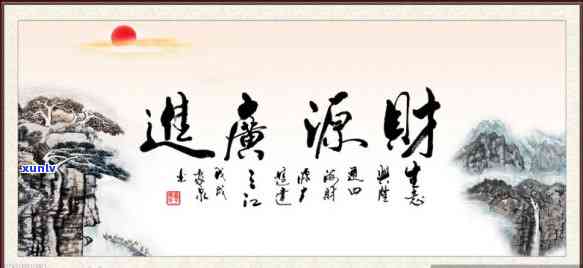 財源廣進
生意
興隆
通四
海財
源
達
三江
戊戌
xunlv